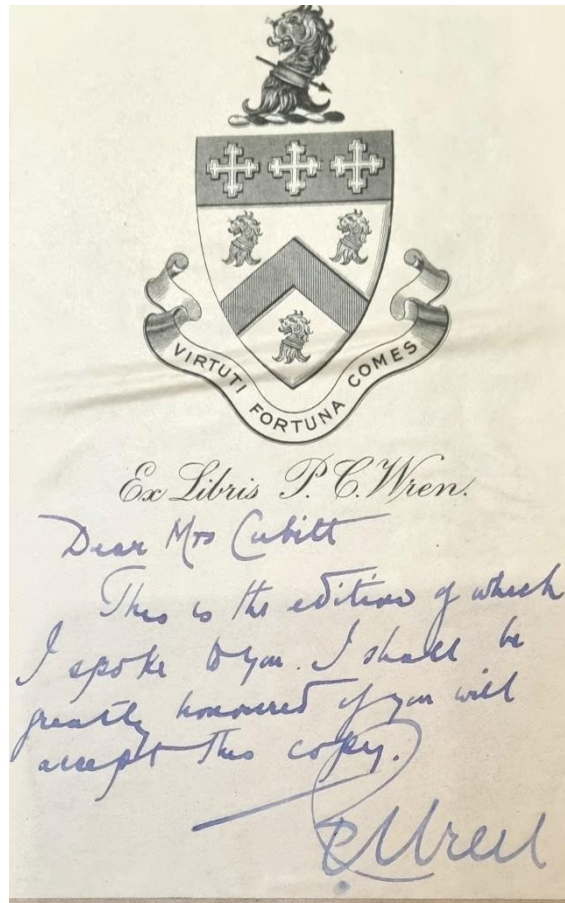 VIRTUTI FORTUNA COMES
Ex Libris P. C. Wren.
Dear Mrs Cubitt
This is the edition of which
I spoke to you. I shall be
greatly honoured if you will
accept this copy.
P. C. Wren